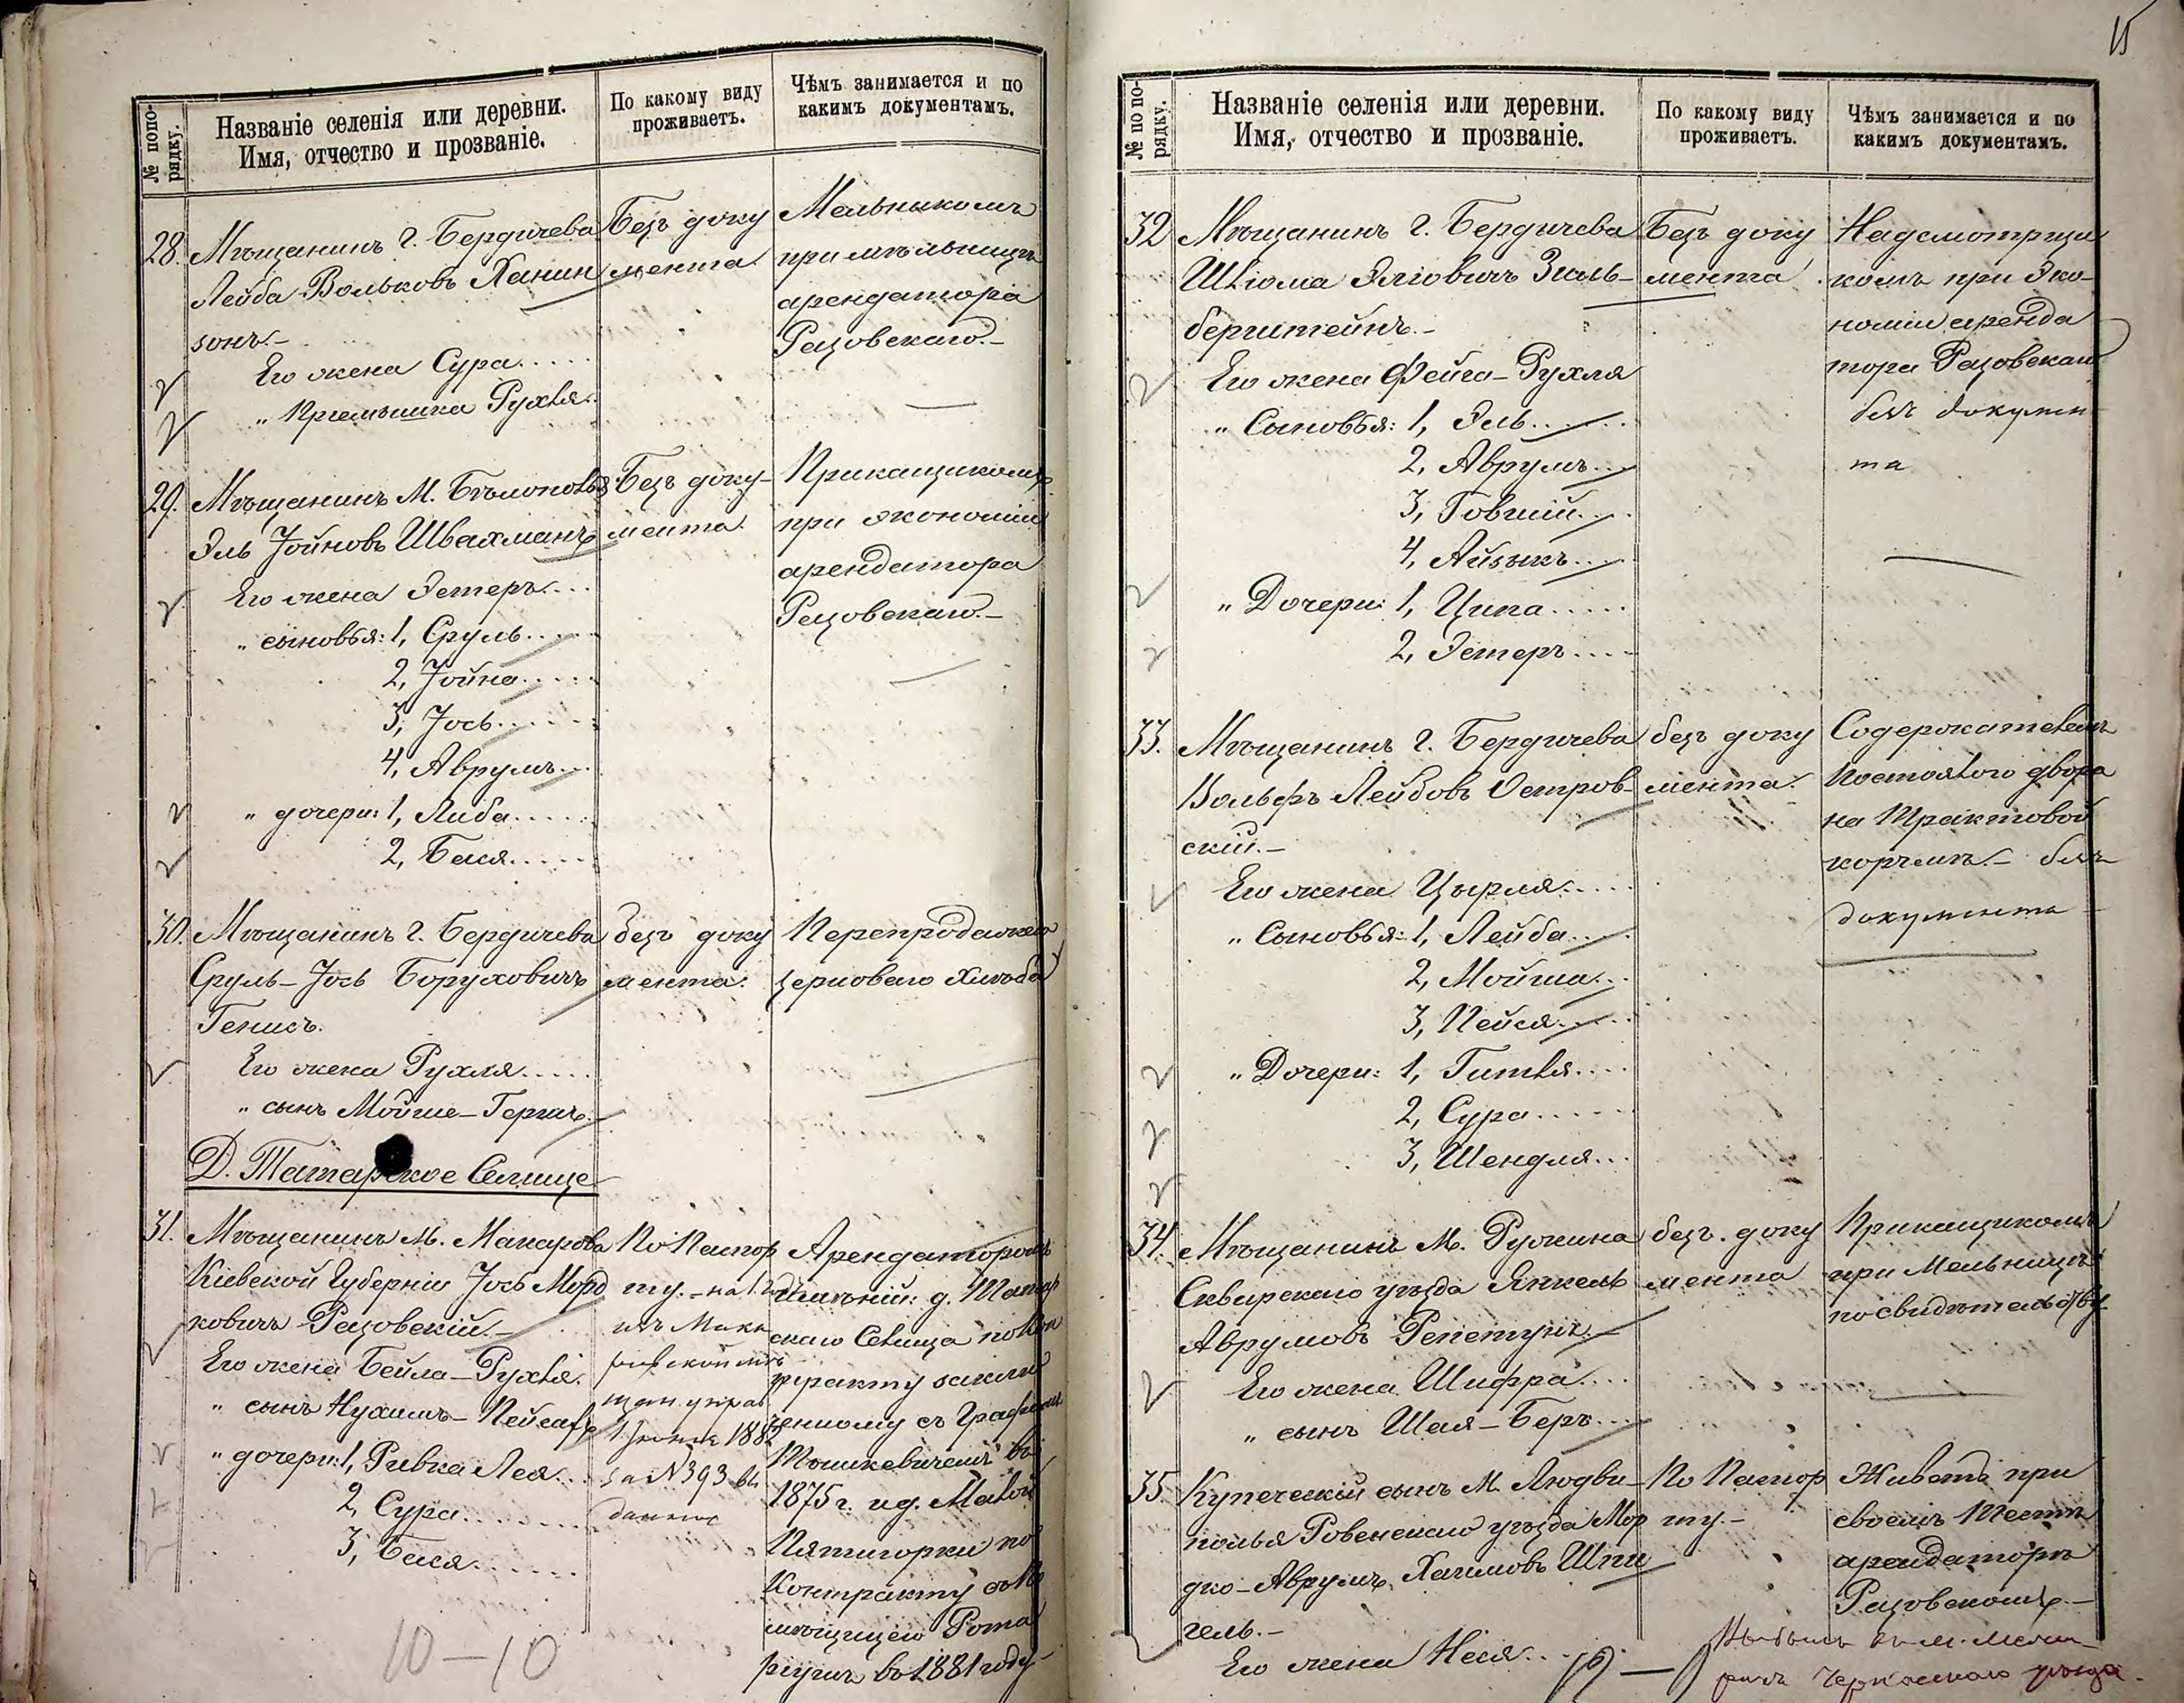 15
№ по по-
рядку.
Названіе селенія или деревни.
Имя, отчество и прозваніе.
По какому виду
проживаетъ.
Чѣмъ занимается и по
какимъ документамъ.
28. Мѣщанинъ г. Бердичева
Лейба Вольковъ Ханин
зонъ.-
Его жена Сура.....
" Пріемышка Рухля.
Безъ доку
мента.
Мельникомъ
при мѣльницѣ
арендатора
Рацовскаго.-
29. Мѣщанинъ М. Бѣлополья
Эль Іойновъ Швахманъ
Его жена Эстеръ....
" сыновья: 1, Сруль.....
2, Іойна.....
3, Іось......
4, Аврумъ...
" дочери: 1, Либа......
2, Бася......
Безъ доку-
мента.
Прикащикомъ
при экономіи
арендатора
Рацовскаго.-
30. Мѣщанинъ г. Бердичева
Сруль-Іось Боруховичъ
Генисъ.
Его жена Рухля.....
" сынъ Мойше-Гершъ.
безъ доку
мента.
Перепродажею
зерноваго хлѣба
Д. Татарское Селище
31. Мѣщанинъ М. Макарова
Кіевской Губерніи Іось Морд
ковичъ Рацовскій.-
Его жена Бейла-Рухля.
" сынъ Нухимъ-Пейсахъ
" дочери: 1, Ривка Лея...
2, Сура........
3, Бася.......
По Паспор
ту.- на 1 годъ
изъ Мака
ровской мѣ
щан. управ
1 Іюня 1882
за № 393 вы
данное
Арендаторомъ
имѣній: д. Татар
скаго Селища по Кон
тракту заклю
ченному съ Графомъ
Тышкевичемъ въ
1875 г. и д. Малой
Пятигорки по
Контракту съ По
мѣщицею Рота
ріушъ въ 1881 году-
10-10
№ по по-
рядку.
Названіе селенія или деревни.
Имя, отчество и прозваніе.
По какому виду
проживаетъ.
Чѣмъ занимается и по
какимъ документамъ.
32 Мѣщанинъ г. Бердичева
Шліома Эліовичъ Зиль-
берштейнъ.-
Его жена Фейга-Рухля
" Сыновья: 1, Эль.......
2, Аврумъ...
3, Говшій....
4, Айзыкъ...
" Дочери: 1, Ципа.....
2, Эстеръ....
Безъ доку
мента.
Надсмотрщи
комъ при Эко-
номіи аренда
тора Рацовскаго
безъ докумен
та
33. Мѣщанинъ г. Бердичева
Вольфъ Лейбовъ Остров-
скій.-
Его жена Цырля.....
" Сыновья: 1, Лейба.....
2, Мойша...
3, Пейся.....
" Дочери: 1, Гитля....
2, Сура......
3, Шендля...
безъ доку
мента.
Содержателемъ
Постоялого двора
на Трактовой
корчмѣ.- безъ
документа-
34. Мѣщанинъ М. Ружина
Сквирскаго уѣзда Янкель
Аврумовъ Репетунъ.-
Его жена Шифра....
" сынъ Шая-Беръ...
безъ доку
мента
Прикащикомъ
при Мельницѣ
по свидѣтельству
35. Купеческій сынъ М. Людви-
полья Ровенскаго уѣзда Мор
дко-Аврумъ Хаимовъ Шпи
гель.-
Его жена Неся...
По Паспор
ту.-
Живетъ при
своемъ Тестѣ
арендаторѣ
Рацовскомъ.-
Черкасскаго уѣзда.